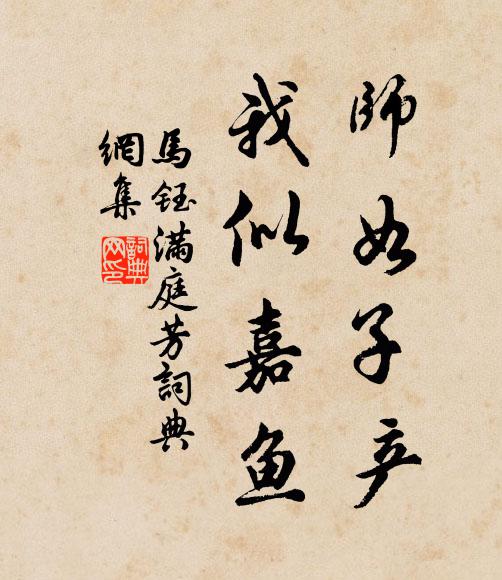 师如子产
我似嘉鱼
馬鈺滿庭芳詞典
網集
詞典網印